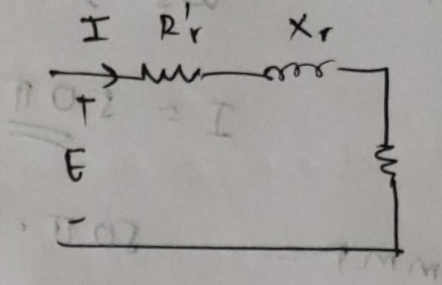 I R'r Xr
+
E
-